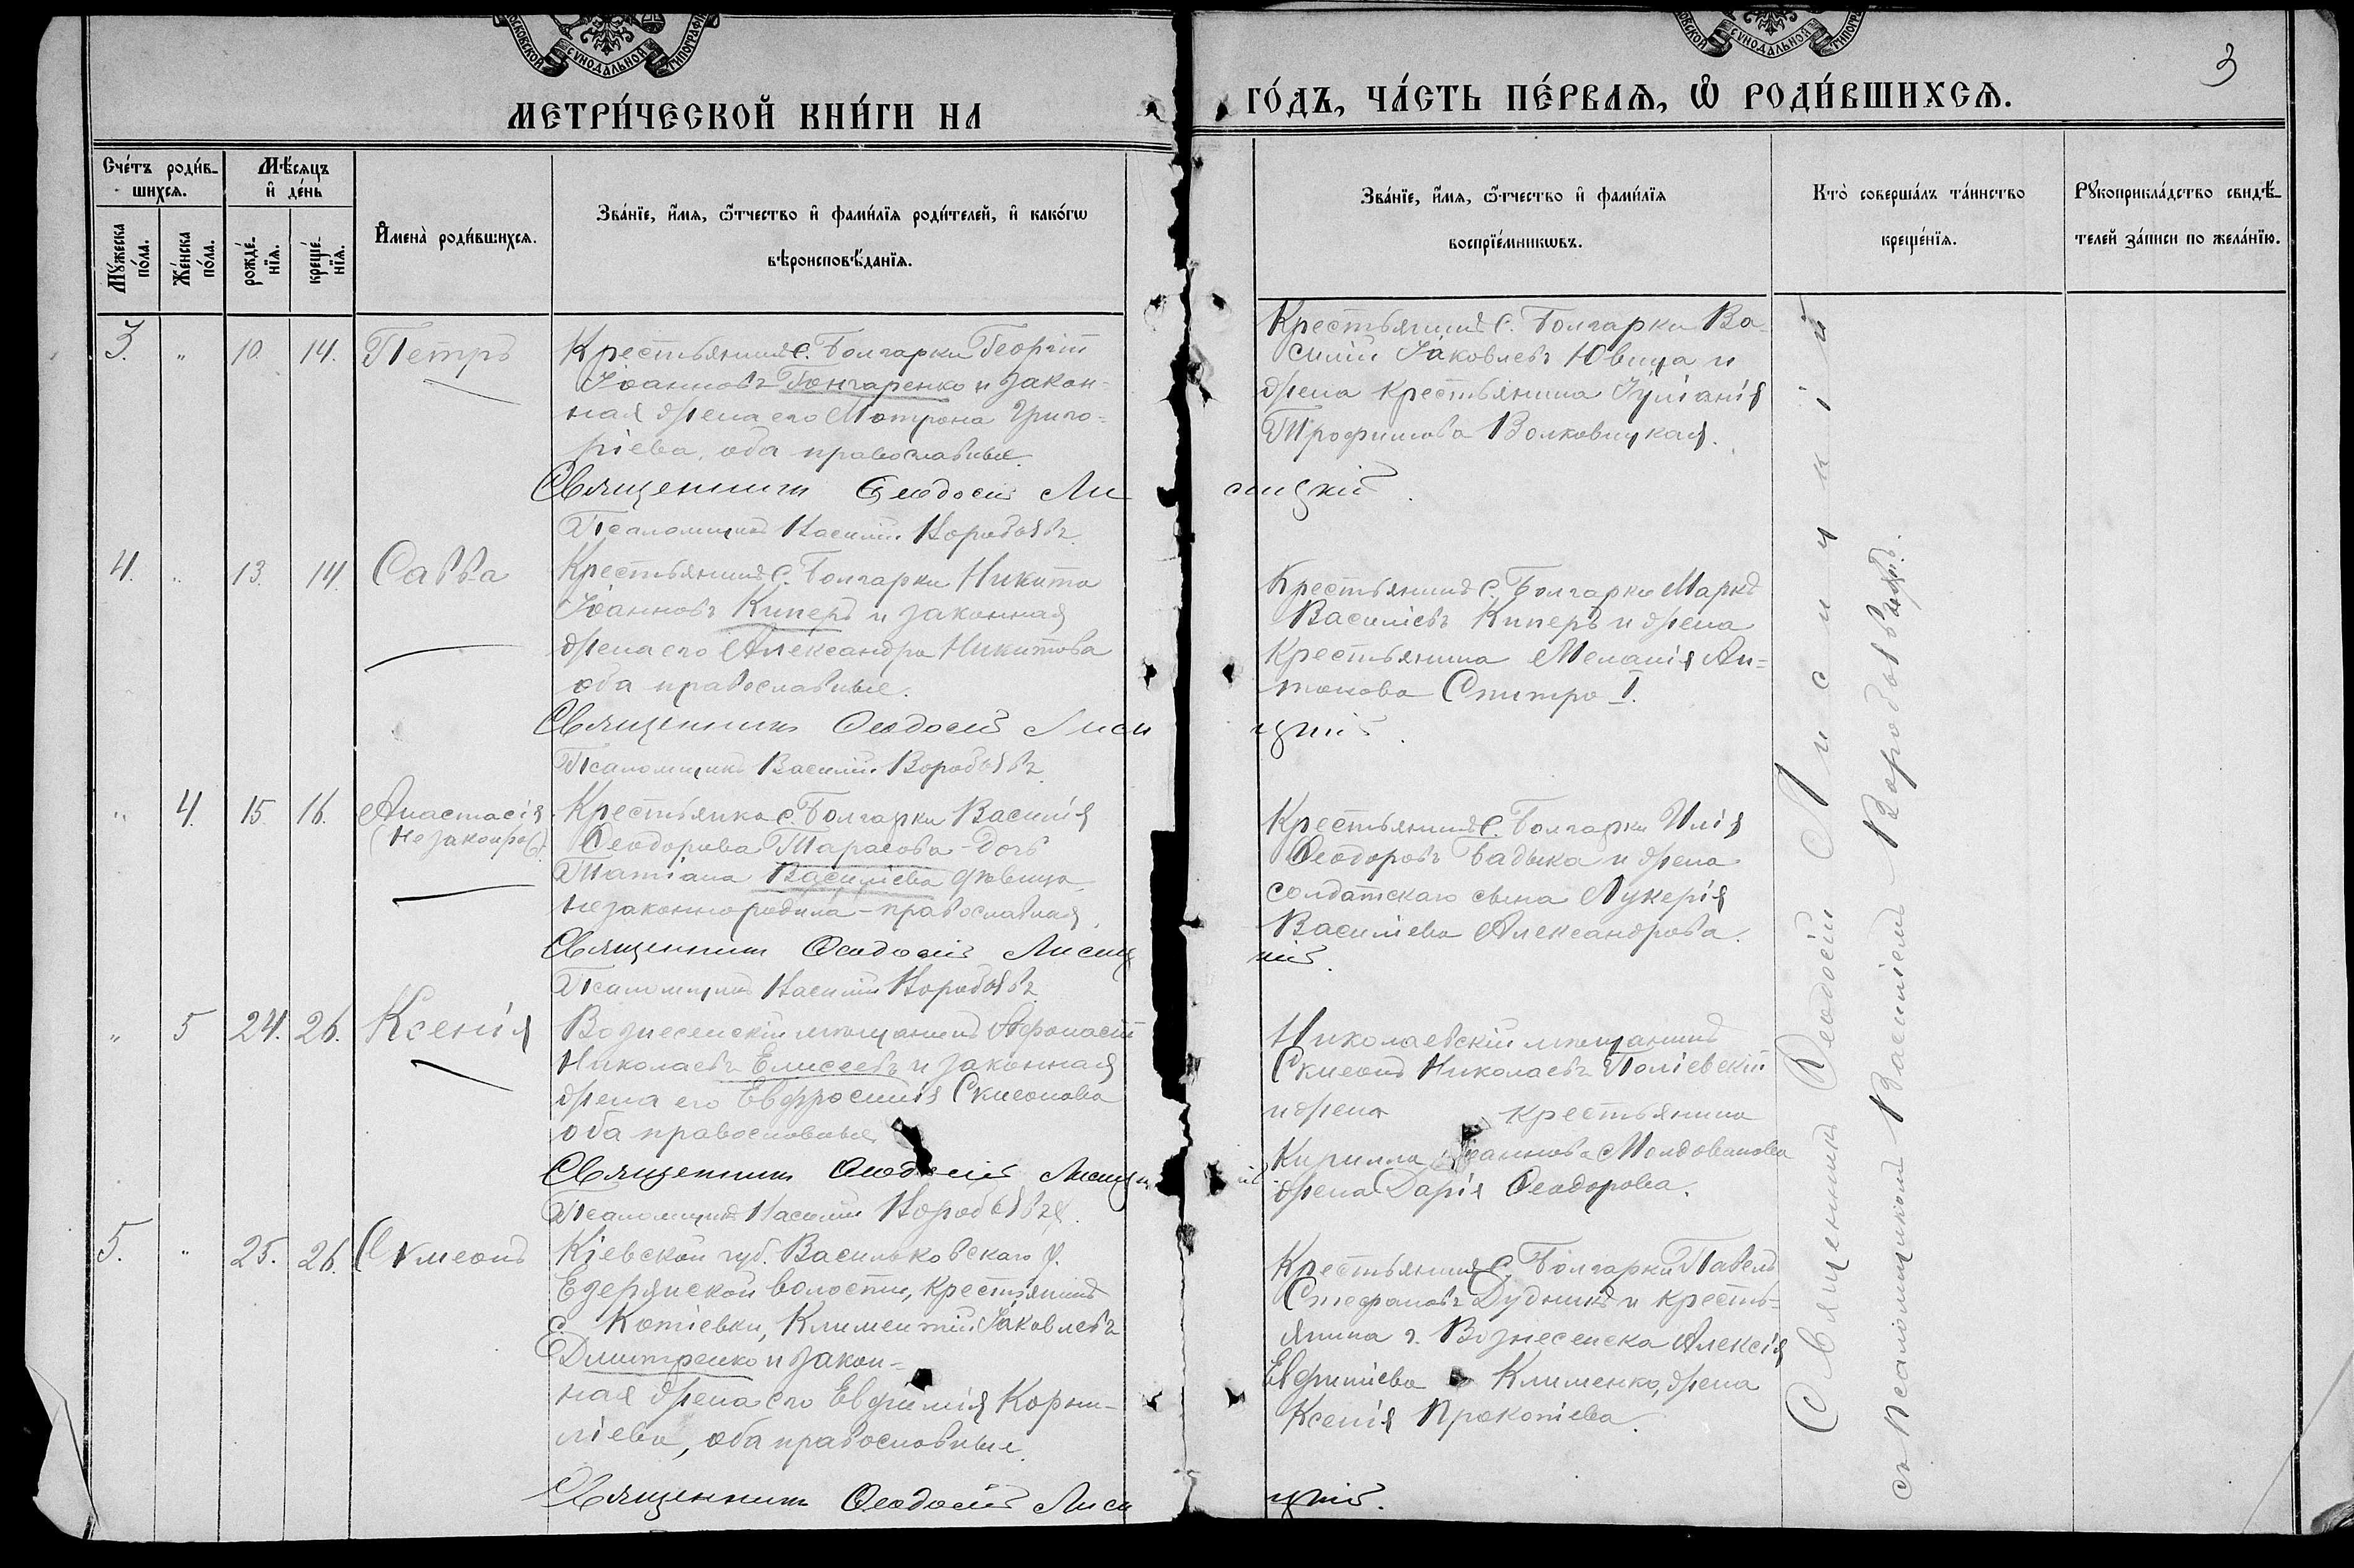 МОСКОВСКОЙ СѴНОДАЛЬНОЙ ТИПОГРАФІИ
МОСКОВСКОЙ СѴНОДАЛЬНОЙ ТИПОГРАФІИ
3
МЕТРИ́ЧЕСКОЙ КНИ́ГИ НА
ГО́ДЪ, ЧА́СТЬ ПЕ́РВАѦ, Ѡ҆ РОДИ́ВШИХСѦ.
Сче́тъ роди́в-
шихсѧ.
Мꙋ́жеска по́ла.
Же́нска по́ла.
Мѣ́сяцъ
и҆ де́нь
рожде́-
нїѧ.
креще́-
нїѧ.
И҆мена̀ роди́вшихсѧ.
Зва́нїе, и҆́мѧ, ѻ҆́тчество и҆ фами́лїѧ роди́телей, и҆ како́гѡ
вѣроисповѣ́данїѧ.
Зва́нїе, и҆́мѧ, ѻ҆́тчество и҆ фами́лїѧ
воспрїе́мникѡвъ.
Кто̀ соверша́лъ та́инство
креще́нїѧ.
Рꙋкоприкла́дство свидѣ́-
телей за́писи по жела́нїю.
3. " 10. 14. Петръ
Крестьянинъ с. Болгарки Георгій
Іоанновъ Гончаренко и закон-
ная жена его Мотрона Григо-
ріева, оба православные.
Крестьянинъ с. Болгарки Ва-
силій Іаковлевъ Ювица и
жена крестьянина Іуліанія
Трофимова Волковицкая.
Священникъ Ѳеодосій Лисицкій.
Псаломщикъ Василій Воробьевъ.
4. " 13. 14. Савва
Крестьянинъ с. Болгарки Никита
Іоанновъ Киперъ и законная
жена его Александра Никитова
оба православные.
Крестьянинъ с. Болгарки Маркъ
Василіевъ Киперъ и жена
Крестьянина Меланія Ан-
тонова Спитро I.
Священникъ Ѳеодосій Лисицкій.
Псаломщикъ Василій Воробьевъ.
" 4. 15. 16. Анастасія
(незаконрож.)
Крестьянка с. Болгарки Василія
Ѳеодорова Тарасова - дочь
Татіана Василіева дѣвица
незаконно родила - православная.
Крестьянинъ с. Болгарки Илія
Ѳеодоровъ Бадыка и жена
солдатскаго сына Лукерія
Василіева Александрова.
Священникъ Ѳеодосій Лисицкій.
Псаломщикъ Василій Воробьевъ.
" 5 24. 26. Ксенія
Вознесенскій мѣщанинъ Аѳонасій
Николаевъ Елисеевъ и законная
жена его Евфросинія Симеонова
оба православные
Николаевскій мѣщанинъ
Симеонъ Николаевъ Поліевскій
и жена крестьянина
Кирилла Іоаннова Молдованова
жена Дарія Ѳеодорова.
Священникъ Ѳеодосій Лисицкій.
Псаломщикъ Василій Воробьевъ.
5. " 25. 26. Симеонъ
Кіевской губ. Васильковскаго у.
Езерянской волости, крестьянинъ
с. Котіевки, Климентій Іаковлевъ
Дмитренко и закон-
ная жена его Евфимія Корни-
ліева, оба православные.
Крестьянинъ с. Болгарки Павелъ
Стефановъ Дудникъ и кресть-
янина г. Вознесенска Алексія
Евфиміева Клименко, жена
Ксенія Прокопіева.
Священникъ Ѳеодосій Лисицкій.
Священникъ Ѳеодосій Лисицкій
съ Псаломщикомъ Василіемъ Воробьевымъ.